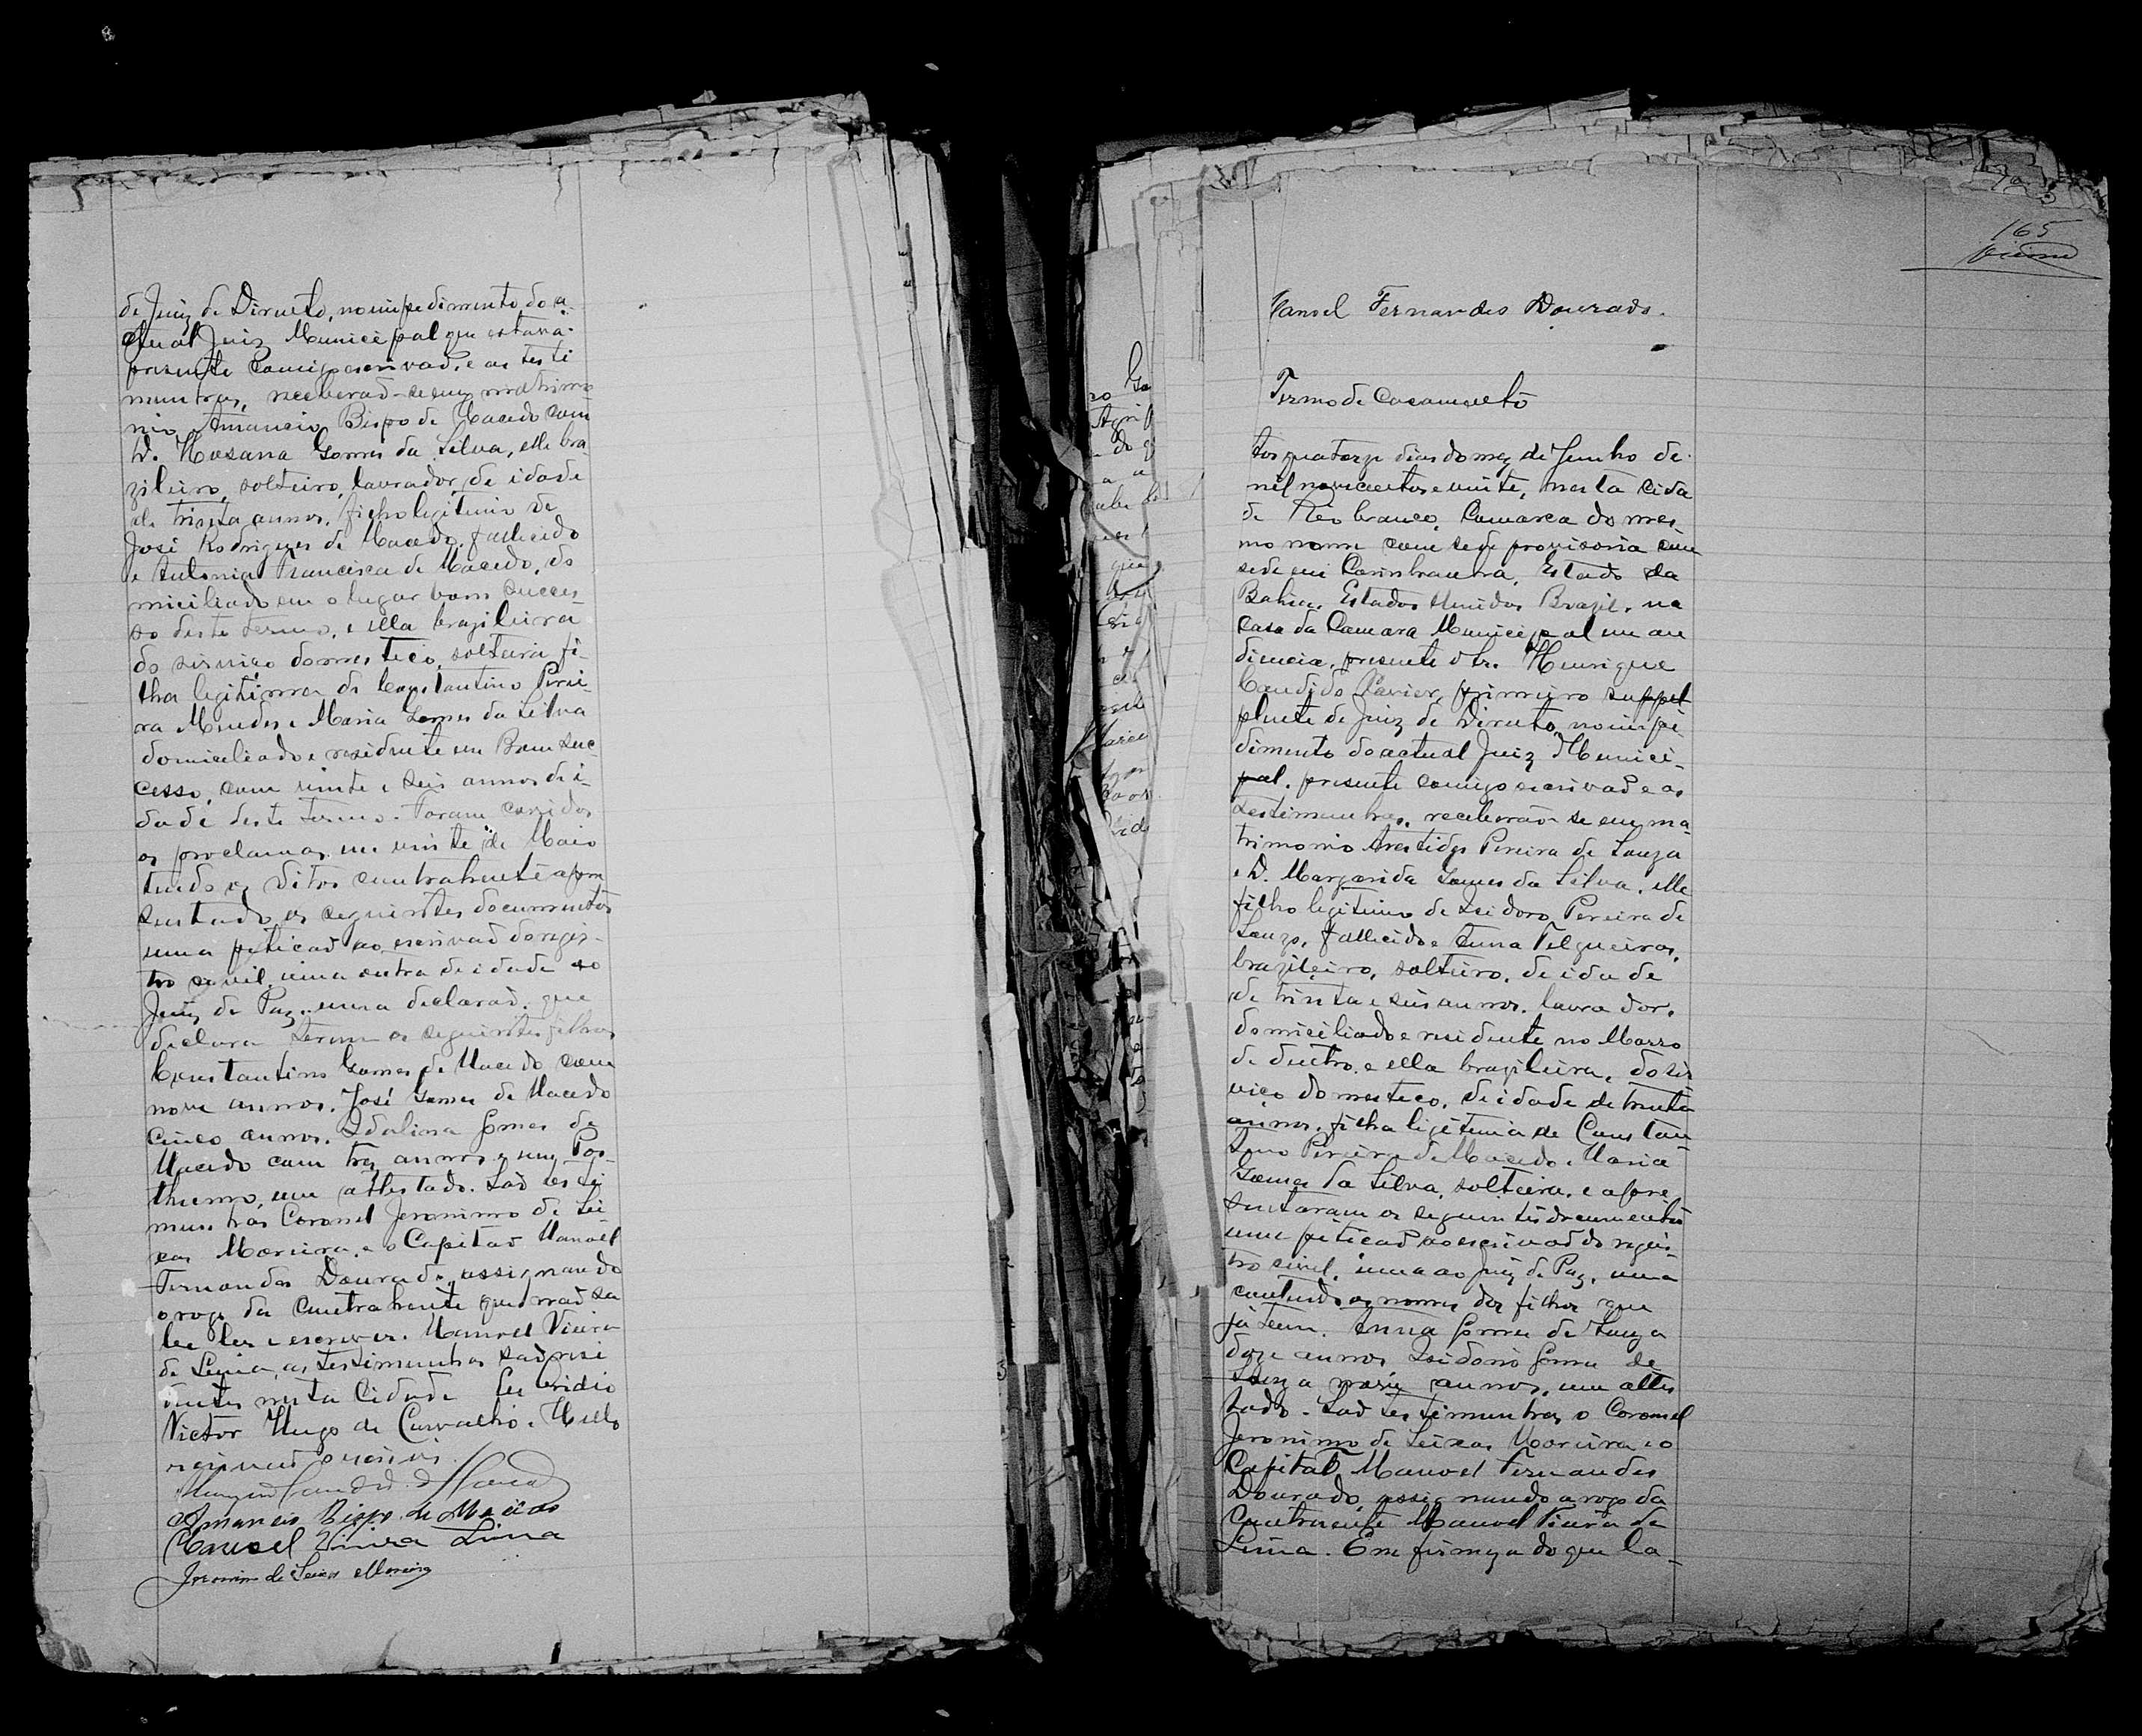 de Juiz de Direito, no impedimento do a-
ctual Juiz Municipal que estava
presente comigo escrivaõ, e as testi
munhas, receberaõ-se em matrimo
nio Amancio Bispo de Macedo com
D. Hosana Gomes da Silva, elle bra
zileiro, solteiro, lavrador, de idade
de trinta annos, filho legitimo de
José Rodrigues de Macedo, fallecido
e Antonia Francisca de Macedo, do
miciliado em o lugar bom succes-
so deste termo, e ella brazileira
do serviço domestico, solteira fi-
lha legitima de Constantino Perei-
ra Mendes e Maria Gomes da Silva
domiciliado e residente em Bom Suc
cesso, com vinte e seis annos de i-
dade deste termo. Foram corridos
os proclamas em vinte de Maio
tendo os ditos contrahente apre
sentado os seguintes documentos
uma peticaõ ao escrivaõ do regis-
tro civil, uma outra de idade ao
Juiz de Paz, uma declaraõ, que
declara terem os seguintes filhos
Constantino Gomes de Macedo com
nove annos, José Gomes de Macedo
cinco annos, Idalina Gomes de
Macedo com tres annos e um Pos-
thumo, um attestado. Saõ testi
munhas Coronel Jeronimo de Sei
xas Moreira, e o Capitaõ Manoel
Fernandes Dourado, assignando
o rogo da contrahente que naõ sa
be ler e escrever. Manoel Vieira
de Lima, as testimunhas saõ resi
dentes nesta Cidade Eu Ovidio
Victor Hugo de Carvalho e Mello
escrivaõ o escrevi.
Amancio Bispo de Macedo
Manoel Vieira Lima
Jeronimo de Seixas Moreira
165
Manoel Fernandes Dourado.
Termo de Casamento
Aos quatorze dias do mez de Junho de
mil novecentos e vinte, nesta cida
de Rio branco, Comarca do mes-
mo nome com sede provisoria com
sede em Carinhanha, Estado da
Bahia, Estados Unidos Brazil, na
casa da Camara Municipal em au
diencia, presente o Sr. Henrique
Candido Xavier, primeiro suppel
plente de Juiz de Direito, no impe-
dimento do actual Juiz Munici-
pal, presente comigo escrivaõ e as
testimunhas, receberaõ-se em ma-
trimonio Aristides Pereira de Souza
e D. Margarida Gomes da Silva, elle
filho legitimo de Isidoro Pereira de
Souza, fallecido e Anna Felgueiras,
brazileiro, solteiro, de idade
de trinta e seis annos, lavrador,
domiciliado e residente no Morro
de dentro, e ella brazileira, do ser
viço domestico, de idade de trinta
annos, filha ligitima de Constan-
tino Pereira de Macedo e Maria
Gomes da Silva, solteira, e apre
sentaram os seguintes documentos
uma peticaõ ao escrivaõ do regis-
tro civil, uma ao Juiz de Paz, uma
contendo os nomes dos filhos que
já tem. Anna Gomes de Souza
doze annos Isidorio Gomes de
Souza nove annos, um attes
tado. Saõ testimunhas o Coronel
Jeronimo de Seixas Moreira e o
Capitaõ Manoel Fernandes
Dourado, assignando a rogo da
Contraente Manoel Vieira de
Lima. Em firmeza do que la-